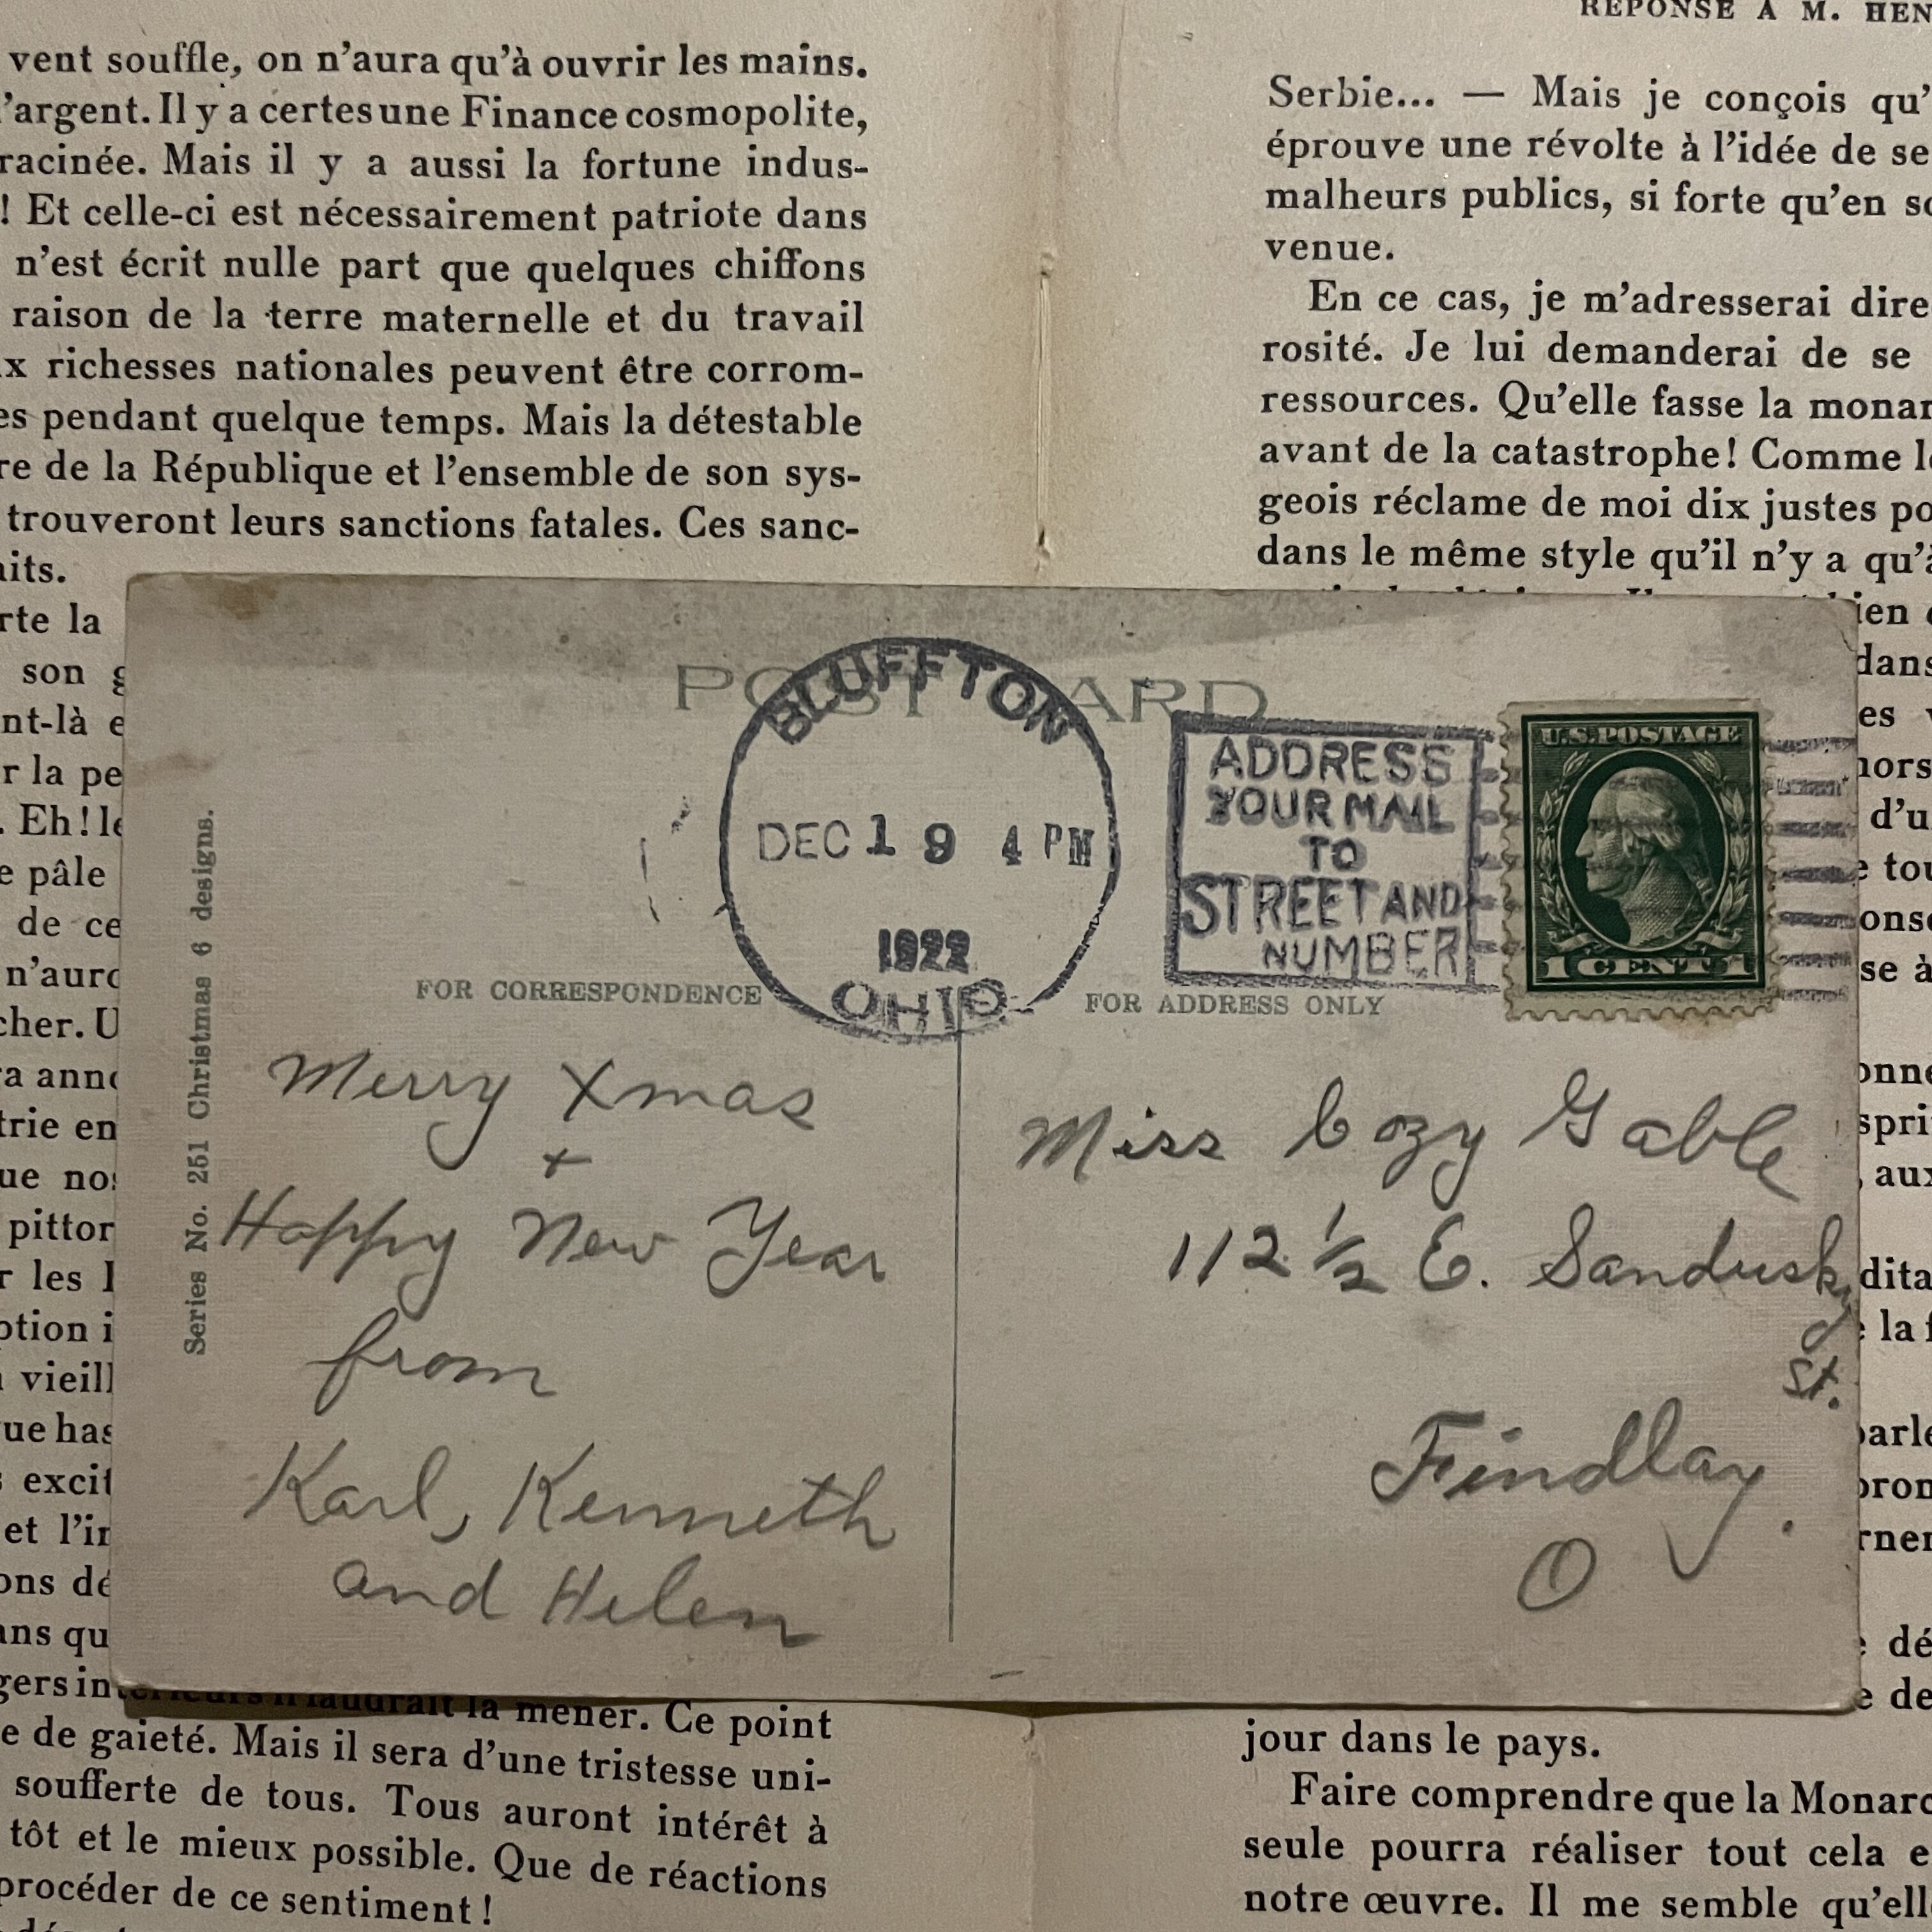 vent souffle, on n'aura qu'à ouvrir les mains.
'argent. Il y a certes une Finance cosmopolite,
racinée. Mais il y a aussi la fortune indus-
! Et celle-ci est nécessairement patriote dans
n'est écrit nulle part que quelques chiffons
raison de la terre maternelle et du travail
x richesses nationales peuvent être corrom-
es pendant quelque temps. Mais la détestable
re de la République et l'ensemble de son sys-
trouveront leurs sanctions fatales. Ces sanc-
aits.
rte la
son g
nt-là e
r la pe
. Eh! le
e pâle
de ce
n'auro
cher. U
ra anno
trie en
ue nos
pittor
r les I
ption i
vieill
ue has
excit
et l'ir
ons dé
ans qu
gers intérieurs il faudrait la mener. Ce point
e de gaieté. Mais il sera d'une tristesse uni-
soufferte de tous. Tous auront intérêt à
tôt et le mieux possible. Que de réactions
procéder de ce sentiment !
RÉPONSE A M. HEN
Serbie... — Mais je conçois qu'
éprouve une révolte à l'idée de se
malheurs publics, si forte qu'en so
venue.
En ce cas, je m'adresserai dire
rosité. Je lui demanderai de se
ressources. Qu'elle fasse la monar
avant de la catastrophe! Comme le
geois réclame de moi dix justes po
dans le même style qu'il n'y a qu'à
ien
dans
es v
hors
d'u
e tou
onse
se à
onne
sprit
, aux
dita
e la f
parle
pron
rner
e dé
e de
jour dans le pays.
Faire comprendre que la Monarc
seule pourra réaliser tout cela e
notre œuvre. Il me semble qu'elle
POST CARD
BLUFFTON
DEC 19 4 PM
1922
OHIO
ADDRESS
YOUR MAIL
TO
STREET AND
NUMBER
U.S. POSTAGE
1 CENT 1
Series No. 251 Christmas 6 designs.
FOR CORRESPONDENCE
FOR ADDRESS ONLY
Merry Xmas
+
Happy New Year
from
Karl, Kenneth
and Helen
Miss Cozy Gable
112 ½ E. Sandusky
St.
Findlay.
O